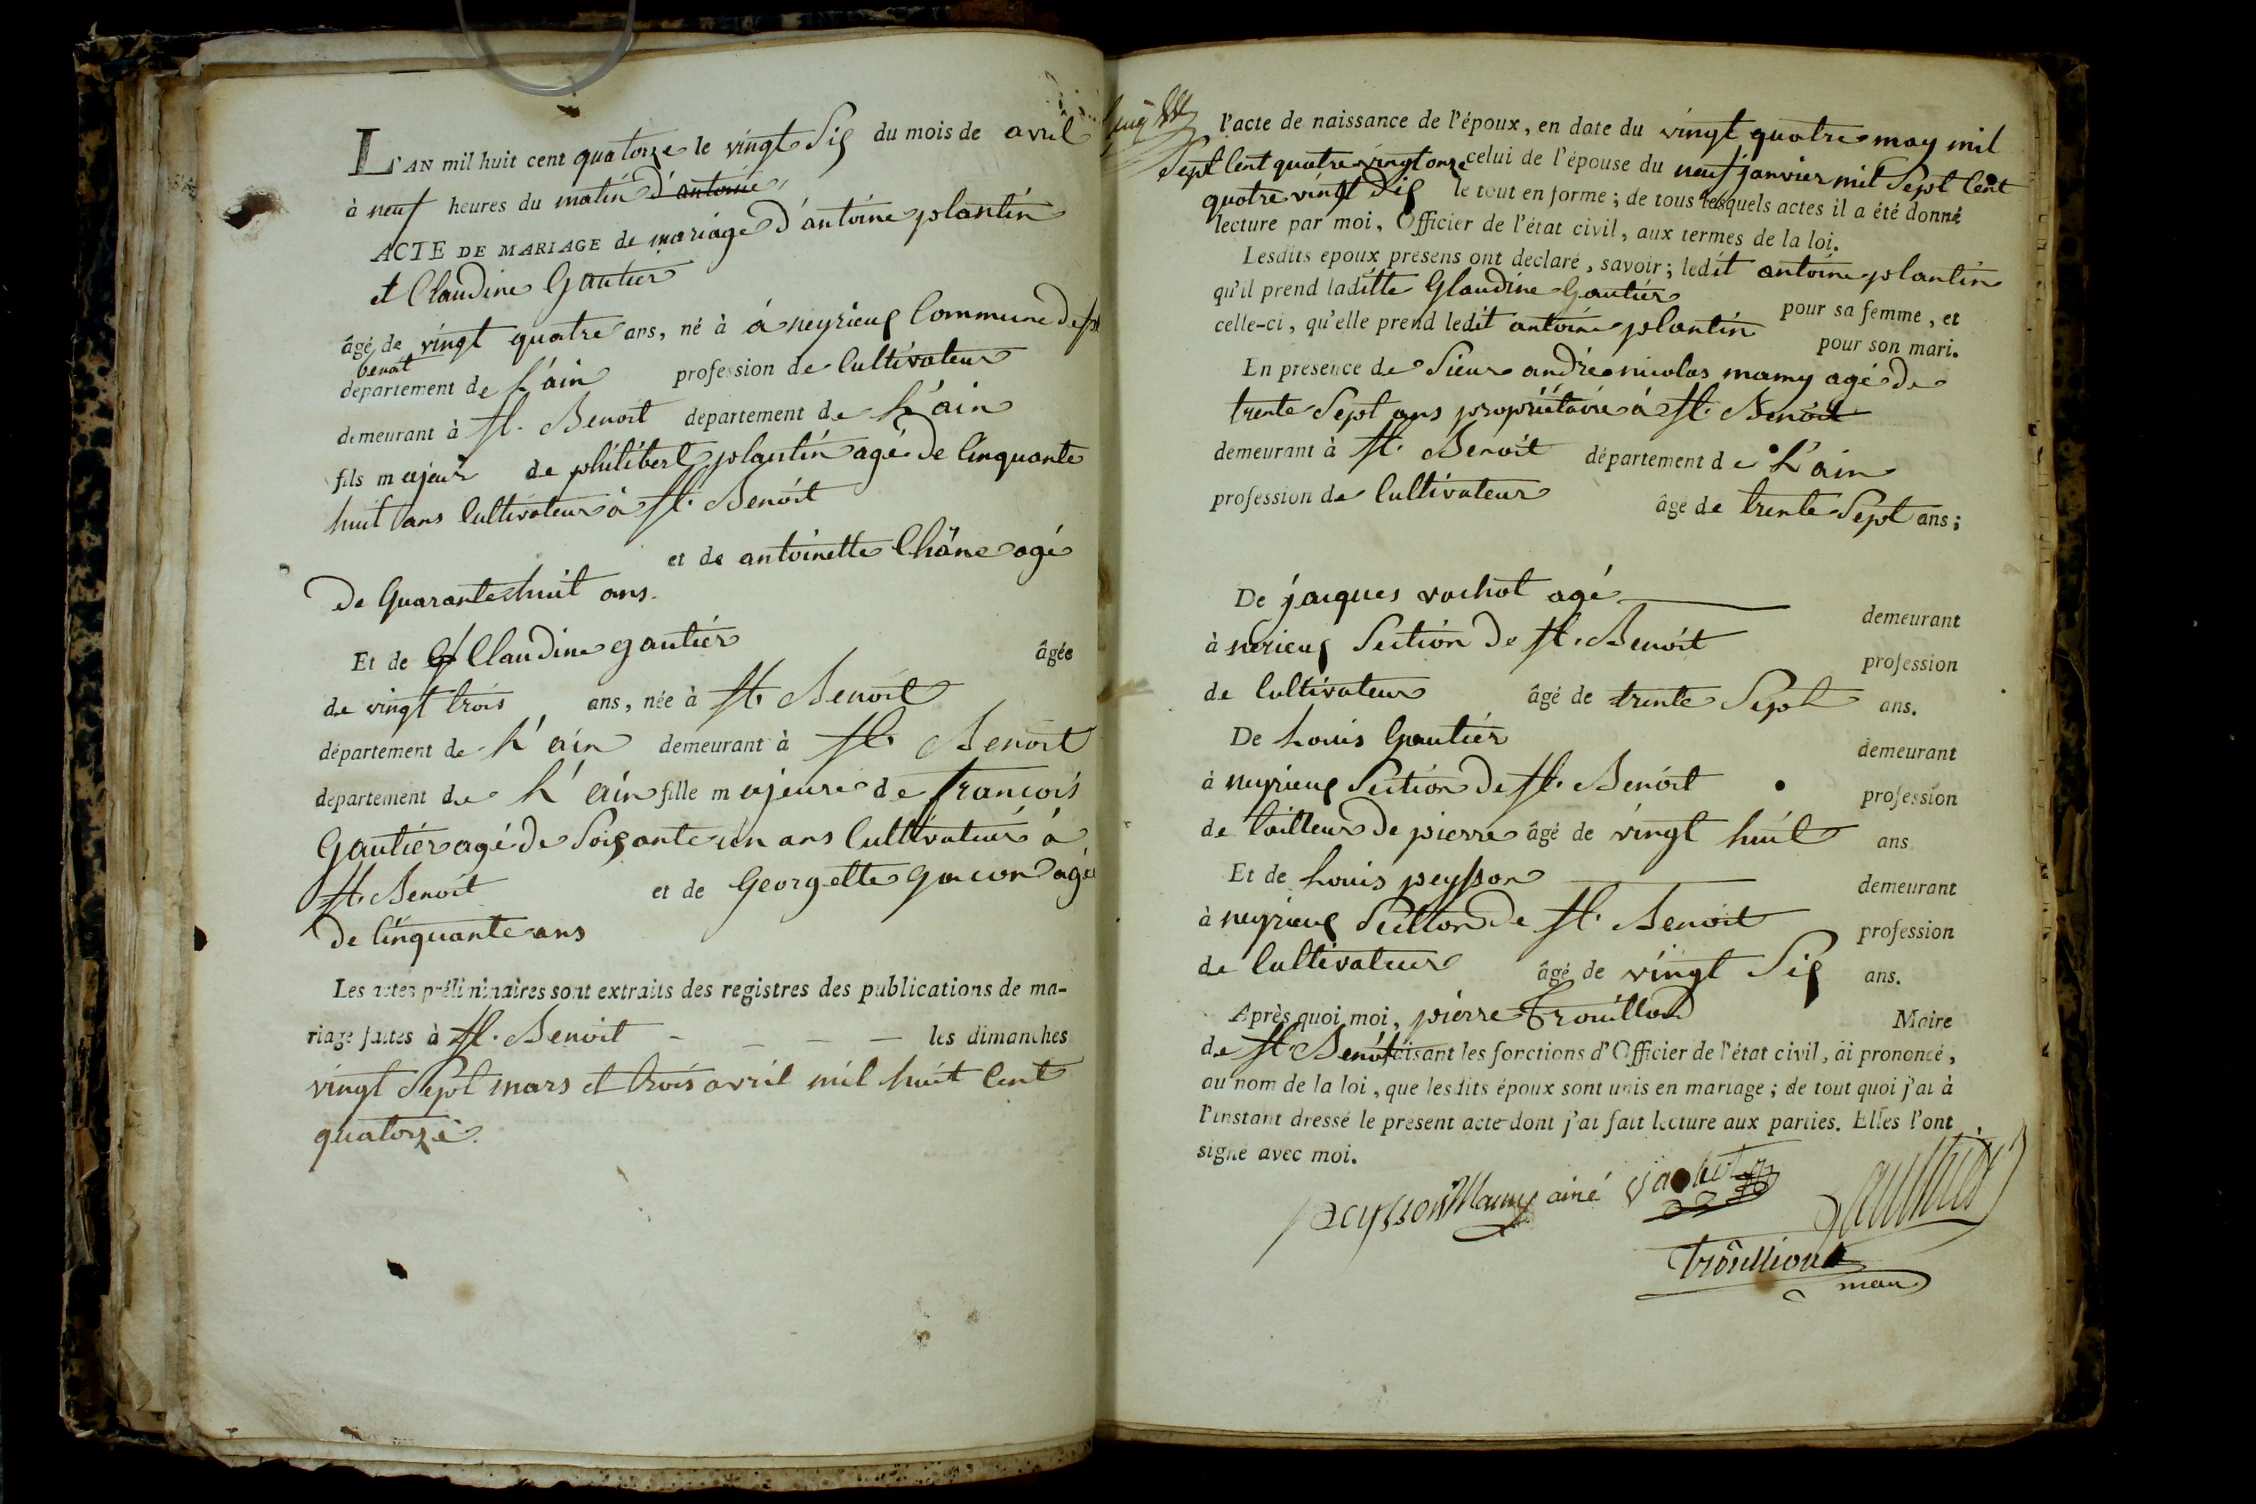 L'AN mil huit cent quatorze le vingt Six du mois de avril
à neuf heures du matin d'antoine
ACTE DE MARIAGE de mariage d'antoine plantin
et Claudine Gautier
âgé de vingt quatre ans, né à á neyrieux Commune de st
benoit
département de L'ain profession de Cultivateur
demeurant à St. Benoit département de L'ain
fils majeur de philibert plantin agé de Cinquante
huit ans Cultivateur à St. Benoit
et de antoinette Châne agé
de Quarante huit ans.
Et de G Claudine gautier âgée
de vingt trois ans, née à St. Benoit
département de L'ain demeurant à St. Benoit
département de L'ain fille majeure de francois
Gautier agé de Soixante un ans Cultivateur à
St. Benoit et de Georgette gacon agée
de Cinquante ans
Les actes préliminaires sont extraits des registres des publications de ma-
riage faites à St. Benoit - - - - les dimanches
vingt Sept mars et trois avril mil huit Cent
quatorze.
l'acte de naissance de l'époux, en date du vingt quatre may mil
Sept Cent quatre vingt onze celui de l'épouse du neuf janvier mil Sept Cent
quatre vingt Dix le tout en forme; de tous lesquels actes il a été donné
lecture par moi, Officier de l'état civil, aux termes de la loi.
Lesdits époux présens ont declaré, savoir; ledit antoine plantin
qu'il prend laditte Glaudine Gautier pour sa femme, et
celle-ci, qu'elle prend ledit antoine plantin pour son mari.
En présence de Sieur andré nicolas mamy agé de
trente Sept ans propriétaire à St. Benoit
demeurant à St. Benoit département de L'ain
profession de Cultivateur âgé de trente Sept ans;
De jacques vachot agé demeurant
à nerieux Section de St. Benoit profession
de Cultivateur âgé de trente Sept ans.
De Louis Gautier demeurant
à neyrieux Section de St. Benoit profession
de tailleur de pierre âgé de vingt huit ans
Et de Louis peysson demeurant
à neyrieux Section de St. Benoit profession
de Cultivateur âgé de vingt Six ans.
Après quoi moi, pierre Trouilloud Maire
de St. Benoit faisant les fonctions d'Officier de l'état civil, ai prononcé,
au nom de la loi, que lesdits époux sont unis en mariage; de tout quoi j'ai à
l'instant dressé le présent acte dont j'ai fait lecture aux parties. Elles l'ont
signé avec moi.
peysson Mamy ainé vachot gauthier
trouilloud
maire